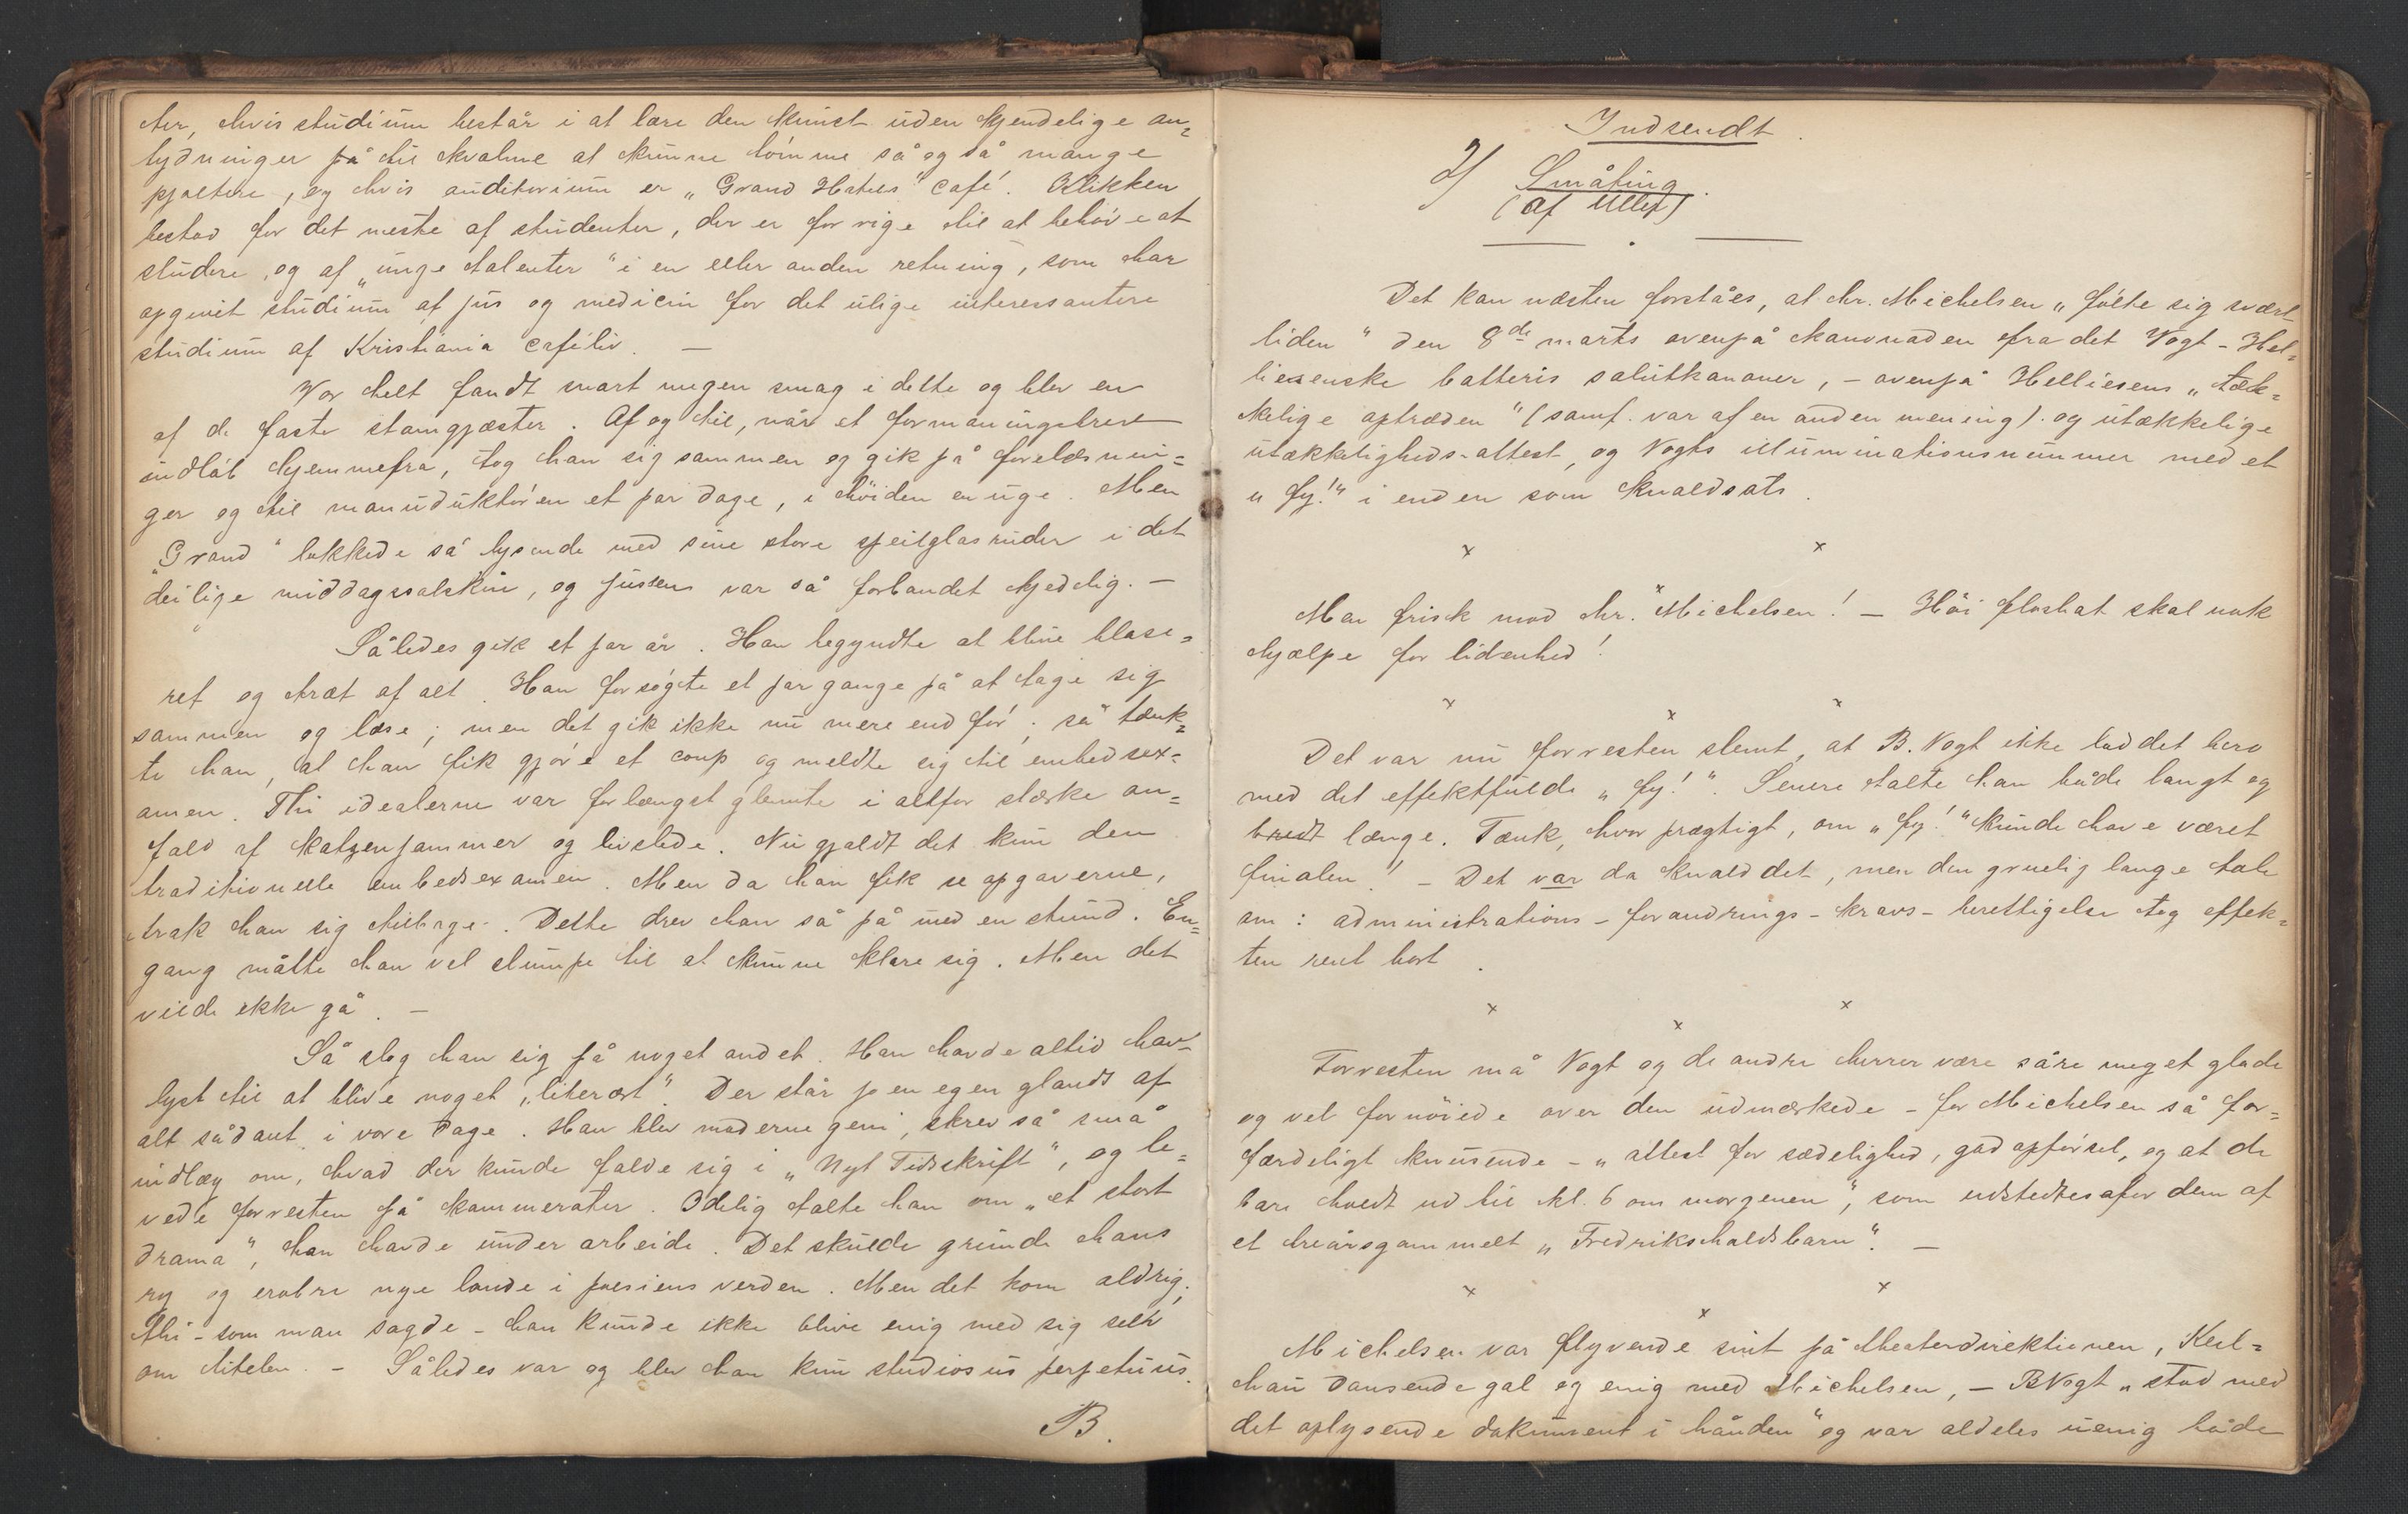 ter, hvis studium består i at lære den kunst uden kjendelige an=
tydninger på til kvalme at kunne tömme så og så mange
pjoltere, og hvis auditorium er „Grand Hotels” café. Klikken
bestod for det meste af studenter, der er for rige til at behöve at
studere, og af „unge talenter” i en eller anden retning, som har
opgivet studium af jus og medicin for det ulige interessantere
studium af Kristiania caféliv. —
Vor helt fandt snart megen smag i dette og blev en
af de faste stamgjæster. Af og til, når et formaningsbrev
indløb hjemmefra, tog han sig sammen og gik på forelæsnin=
ger og til manuduktören et par dage, i höiden en uge. Men
„Grand” lokkede så lysende med sine store speilglasruder i det
deilige middagssolskin, og jussen var så forbandet kjedelig. —
Således gik et par år. Han begyndte at blive blase=
ret og træt af alt. Han forsögte et par gange på at tage sig
sammen og læse; men det gik ikke nu mere end för; så tænk=
te han, at han fik gjöre et coup og meldte sig til embedsex=
amen. Thi idealerne var forlængst glemte i altfor stærke an=
fald af katzenjammer og livslede. Nu gjaldt det kun den
traditionelle embedsexamen. Men da han fik se opgaverne,
trak han sig tilbage. Dette drev han så på med en stund. En=
gang måtte han vel slumpe til at kunne klare sig. Men det
vilde ikke gå. —
Så slog han sig på noget andet. Han havde altid hav
lyst til at blive noget „literært”. Der står jo en egen glands af
alt sådant i vore dage. Han blev moderne geni, skrev så små
indlæg om, hvad der kunde falde sig i „Nyt Tidsskrift”, og le=
vede forresten på kammerater. Idelig talte han om „et stort
drama”, han havde under arbeide. Det skulde grunde hans
ry og erobre nye lande i poesiens verden. Men det kom aldrig;
thi – som man sagde – han kunde ikke blive enig med sig selv
om titelen. – Således var og blev han kun studiosus perpetuus.
B.
Indsendt.
2) Småting.
(af Ulley)
Det kan næsten forståes, at hr. Michelsen „fölte sig svært
liden” den 8de marts ovenpå kanonaden fra det Vogt-Hel=
liesenske batteris salutkanoner, – ovenpå Helliesens „tæk=
kelige optræden” (samf. var af en anden mening). og utækkelige
utækkeligheds-attest, og Vogts illuminationsnummer med et
„fy!” i enden som knaldsats.
x x x
Man frisk mod hr. Michelsen! — Höi floshat skal nok
hjælpe for lidenhed!
x x x
Det var nu forresten slemt, at B. Vogt ikke lod det bero
med det effektfulde „fy!”. Senere talte han både langt og
bredt længe. Tænk, hvor prægtigt, om „fy!” kunde have været
finalen! – Det var da knald det, men den gruelig lange tale
om: administrations-forandrings-kravs-berettigelse tog effek=
ten rent bort.
x x x
Forresten må Vogt og de andre herrer være såre meget glade
og vel fornöiede over den udmærkede – for Michelsen så for=
færdeligt knusende – „attest for sædelighed, god opförsel, og at de
bare holdt ud til kl. 6 om morgenen”, som udstedtes for dem af
et treårsgammelt „Fredrikshaldsbarn”. —
x x x
Michelsen var flyvende sint på theaterdirektionen, Keil=
hau dansende gal og enig med Michelsen, – B Vogt „stod med
det oplysende dokument i hånden” og var aldeles uenig både